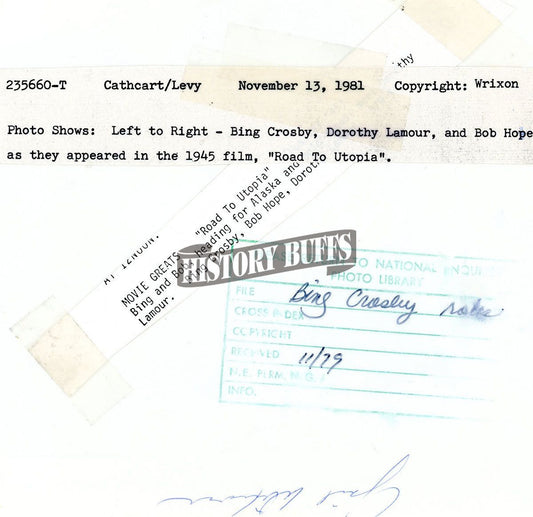 thy
235660-T Cathcart/Levy November 13, 1981 Copyright: Wrixon
Photo Shows: Left to Right - Bing Crosby, Dorothy Lamour, and Bob Hope
as they appeared in the 1945 film, "Road To Utopia".
AT 12NOON.
MOVIE GREATS "Road To Utopia"
Bing and Bob heading for Alaska and
Bing Crosby, Bob Hope, Dorot
Lamour.
HISTORY BUFFS
TO NATIONAL ENQUI
PHOTO LIBRARY
FILE Bing Crosby
CROSS INDEX
COPYRIGHT
RECEIVED 11/79
N.E. PERM. N.G.
INFO.